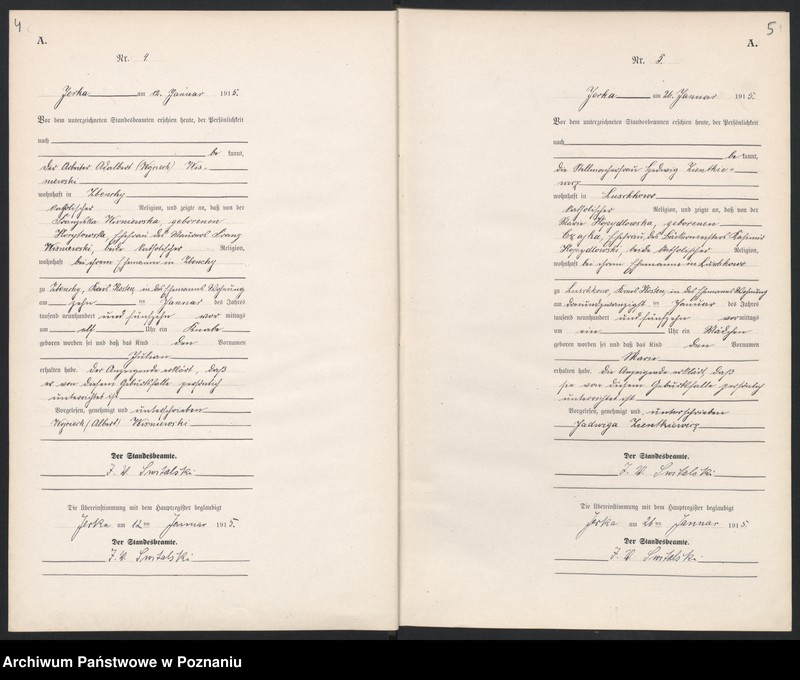 4
A.
Nr. 4.
Jerka am 12. Januar 1915.
Vor dem unterzeichneten Standesbeamten erschien heute, der Persönlichkeit
nach
be kannt,
der Arbeiter Adalbert (Wojciech) Wis-
niewski
wohnhaft in Zbenchy
katholischer Religion, und zeigte an, daß von der
Franziska Wisniewska, geborenen
Ehefrau des Franz
Wisniewski, beide katholischer Religion,
wohnhaft bei ihrem Ehemanne in Zbenchy
zu Zbenchy, Kreis Kosten, in des Ehemannes Wohnung
am zehn im Januar des Jahres
tausend neunhundert und fünfzehn vor mittags
um elf Uhr ein Knabe
geboren worden sei und daß das Kind den Vornamen
Julian
erhalten habe. Der Anzeigende erklärt, daß
er von diesem Geburtsfalle persönlich
unterrichtet ist.
Vorgelesen, genehmigt und unterschrieben
Wojciech (Albert) Wisniewski
Der Standesbeamte.
J. V. Switalski
Die Übereinstimmung mit dem Hauptregister beglaubigt
Jerka am 12ten Januar 1915.
Der Standesbeamte.
J. V. Switalski
5
A.
Nr. 5.
Jerka am 26. Januar 1915.
Vor dem unterzeichneten Standesbeamten erschien heute, der Persönlichkeit
nach
be kannt,
die Stellmacherfrau Hedwig Zientkie-
wicz
wohnhaft in Luschkowo
katholischer Religion, und zeigte an, daß von der
Marie geborenen
Czajka, Ehefrau des Kasimir
beide katholischer Religion,
wohnhaft bei ihrem Ehemanne in Luschkowo
zu Luschkowo, Kreis Kosten, in des Ehemannes Wohnung
am dreiundzwanzigst im Januar des Jahres
tausend neunhundert und fünfzehn vor mittags
um ein Uhr ein Mädchen
geboren worden sei und daß das Kind den Vornamen
Marie
erhalten habe. Die Anzeigende erklärt, daß
sie von diesem Geburtsfalle persönlich
unterrichtet ist.
Vorgelesen, genehmigt und unterschrieben
Jadwiga Zientkiewicz
Der Standesbeamte.
J. V. Switalski
Die Übereinstimmung mit dem Hauptregister beglaubigt
Jerka am 26ten Januar 1915.
Der Standesbeamte.
J. V. Switalski
Archiwum Państwowe w Poznaniu